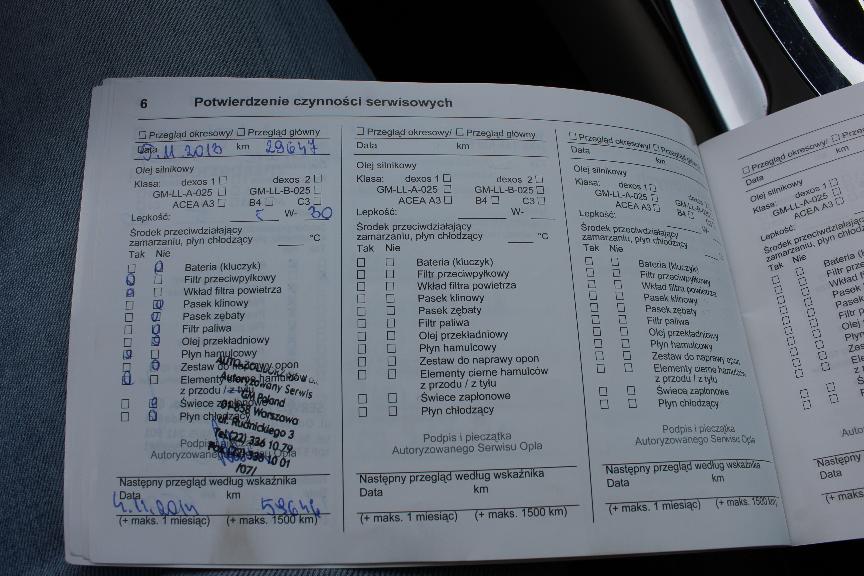 6 Potwierdzenie czynności serwisowych
☐ Przegląd okresowy/ ☐ Przegląd główny
Data 11.2013 km 29647
Olej silnikowy
Klasa: dexos 1 ☐ dexos 2 ☐
GM-LL-A-025 ☐ GM-LL-B-025 ☐
ACEA A3 ☐ B4 ☐ C3 ☐
Lepkość: 5 W- 30
Środek przeciwdziałający
zamarzaniu, płyn chłodzący °C
Tak Nie
Bateria (kluczyk)
Filtr przeciwpyłkowy
Wkład filtra powietrza
Pasek klinowy
Pasek zębaty
Filtr paliwa
Olej przekładniowy
Płyn hamulcowy
Zestaw do naprawy opon
Elementy cierne hamulców
z przodu / z tyłu
Świece zapłonowe
Płyn chłodzący
Autoryzowany Serwis
GM Poland
Warszawa
ul. Rudnickiego 3
Tel. (22) 336 10 79
336 10 01
/07/
Podpis i
Autoryzowanego Opla
Następny przegląd według wskaźnika
Data km
4.11.2014 59646
(+ maks. 1 miesiąc) (+ maks. 1500 km)
☐ Przegląd okresowy/ ☐ Przegląd główny
Data km
Olej silnikowy
Klasa: dexos 1 ☐ dexos 2 ☐
GM-LL-A-025 ☐ GM-LL-B-025 ☐
ACEA A3 ☐ B4 ☐ C3 ☐
Lepkość: W-
Środek przeciwdziałający
zamarzaniu, płyn chłodzący °C
Tak Nie
☐ ☐ Bateria (kluczyk)
☐ ☐ Filtr przeciwpyłkowy
☐ ☐ Wkład filtra powietrza
☐ ☐ Pasek klinowy
☐ ☐ Pasek zębaty
☐ ☐ Filtr paliwa
☐ ☐ Olej przekładniowy
☐ ☐ Płyn hamulcowy
☐ ☐ Zestaw do naprawy opon
☐ ☐ Elementy cierne hamulców
z przodu / z tyłu
☐ ☐ Świece zapłonowe
☐ ☐ Płyn chłodzący
Podpis i pieczątka
Autoryzowanego Serwisu Opla
Następny przegląd według wskaźnika
Data km
(+ maks. 1 miesiąc) (+ maks. 1500 km)
☐ Przegląd okresowy/ ☐ Przegląd
Data km
Olej silnikowy
Klasa: dexos 1 ☐
GM-LL-A-025 ☐
ACEA A3 ☐ B4 ☐
Lepkość:
Środek przeciwdziałający
zamarzaniu, płyn chłodzący
Tak Nie
☐ ☐ Bateria (kluczyk)
☐ ☐ Filtr przeciwpyłkowy
☐ ☐ Wkład filtra powietrza
☐ ☐ Pasek klinowy
☐ ☐ Pasek zębaty
☐ ☐ Filtr paliwa
☐ ☐ Olej przekładniowy
☐ ☐ Płyn hamulcowy
☐ ☐ Zestaw do naprawy opon
☐ ☐ Elementy cierne hamulców
z przodu / z tyłu
☐ ☐ Świece zapłonowe
☐ ☐ Płyn chłodzący
Podpis i pieczątka
Autoryzowanego Serwisu Opla
Następny przegląd według wskaźnika
Data km
(+ maks. 1 miesiąc) (+ maks. 1500 km)
☐ Przegląd okresowy/ ☐
Data km
Olej silnikowy
Klasa: dexos 1 ☐
GM-LL-A-025 ☐
ACEA A3 ☐
Lepkość:
Środek przeciwdziałający
zamarzaniu, płyn
Tak Nie
Bateria
Filtr
Wkład
Pasek
Pasek
Filtr
Olej
Płyn
Następny
Data
(+ maks. 1 miesiąc)